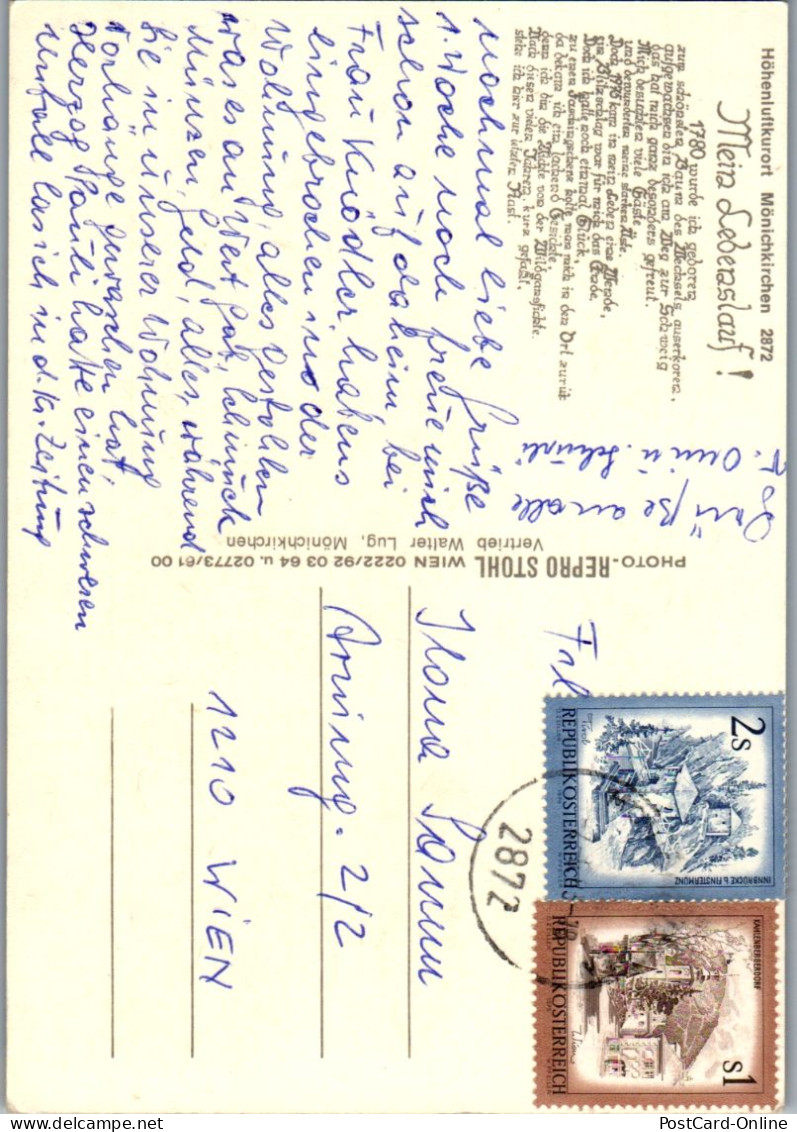 Höhenluftkurort Mönichkirchen 2872
Mein Lebenslauf!
1780 wurde ich geboren,
zum schönsten Baum des Wechsels auserkoren,
aufgewachsen bin ich am Weg zur Schweig
das hat mich ganz besonders gefreut.
Mich besuchten viele Gäste
und bewunderten meine starken Äste.
Doch 1976 kam in mein Leben eine Wende,
ein Blitzschlag war für mich das Ende.
Doch ich hatte noch einmal Glück,
zu einem Faschingscherz holte man mich in den Ort zurück
da bekam ich ein lachend Gesichte
denn ich bin die Nichte von der Wildgansfichte.
Nach diesen vielen Jahren, kurz gefaßt,
stehe ich hier zur letzten Rast.
Nochmal liebe Grüße
1. Woche noch freue mich
schon auf daheim bei
Frau Knödler habens
eingebrochen in der
Wohnung, alles gestohlen
was es an Wert gab, Schmuck
Münzen, Geld, alles, während
Sie in unserer Wohnung
Vorhänge gewaschen hat,
Herzog Pauli hatte einen schweren
Unfall las ich in d. Kr. Zeitung
Grüße an alle
T. Omi u.
PHOTO-REPRO STOHL WIEN 0222/92 03 64 u. 02773/61 00
Vertrieb Walter Lug, Mönichkirchen
Frl
Ilona
2/2
1210 WIEN
2872
2s
REPUBLIK ÖSTERREICH
Tirol
INNBRÜCKE B. FINSTERMÜNZ
s1
REPUBLIK ÖSTERREICH
Wien
KAHLENBERGERDORF
PostCard-Online